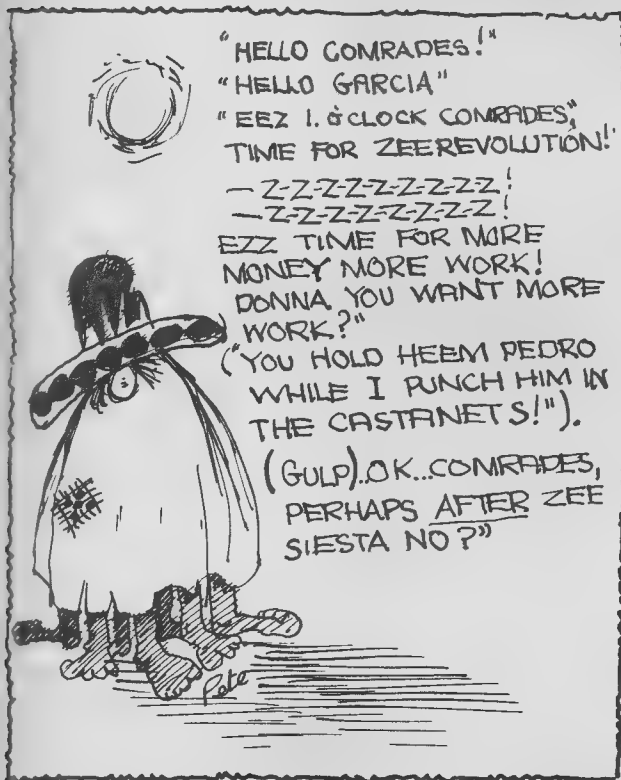 "HELLO COMRADES!"
"HELLO GARCIA"
"EEZ 1. O'CLOCK COMRADES,"
TIME FOR ZEE REVOLUTION!'
— Z-Z-Z-Z-Z-Z-Z-Z!
— Z-Z-Z-Z-Z-Z-Z-Z!
EZZ TIME FOR MORE
MONEY MORE WORK!
DONNA YOU WANT MORE
WORK?"
("YOU HOLD HEEM PEDRO
WHILE I PUNCH HIM IN
THE CASTANETS!").
(GULP)..OK...COMRADES,
PERHAPS AFTER ZEE
SIESTA NO?"
Pete